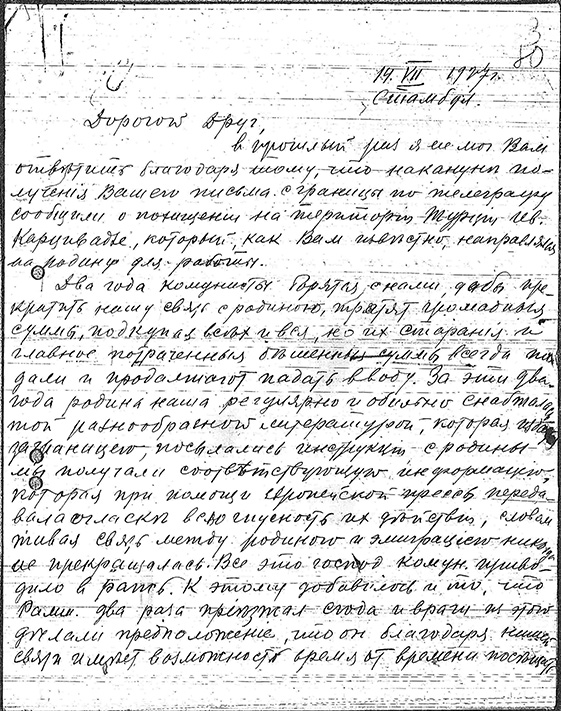 3
80
19. VII 1927 г.
Стамбул.
Дорогой Друг,
в прошлый раз я не мог Вам
ответить благодаря тому, что накануне по-
лученія Вашего письма с границы по телеграфу
сообщили о похищении на територіи Турціи
который, как Вам известно, направлялся
на родину для работы.
Два года комунисты борятся с нами дабы пре-
кратить нашу связь с родиною, тратят громадныя
суммы, подкупая всех и вся, но их старанія и
главное потраченныя бешенныя суммы всегда па-
дали и продалжают падать в воду. За эти два
года родина наша регулярно и обильно снабжалась
той разнообразной литературой, которая
заграницею, посылались инструкции с родины
мы получали соотвѣтствующую информацію,
которая при помощи Европейской прессы переда-
вала огласкѣ всю гнусность их дѣйствій, словом
живая связь между родиною и эмиграціею никогда
не прекращалась. Все это господ комун. приво-
дило в ражь. К этому добавилось и то, что
два раза пріезжал сюда и враги из этого
дѣлали предположение, что он благодаря нашей
связи имѣет возможность время от времени посещать